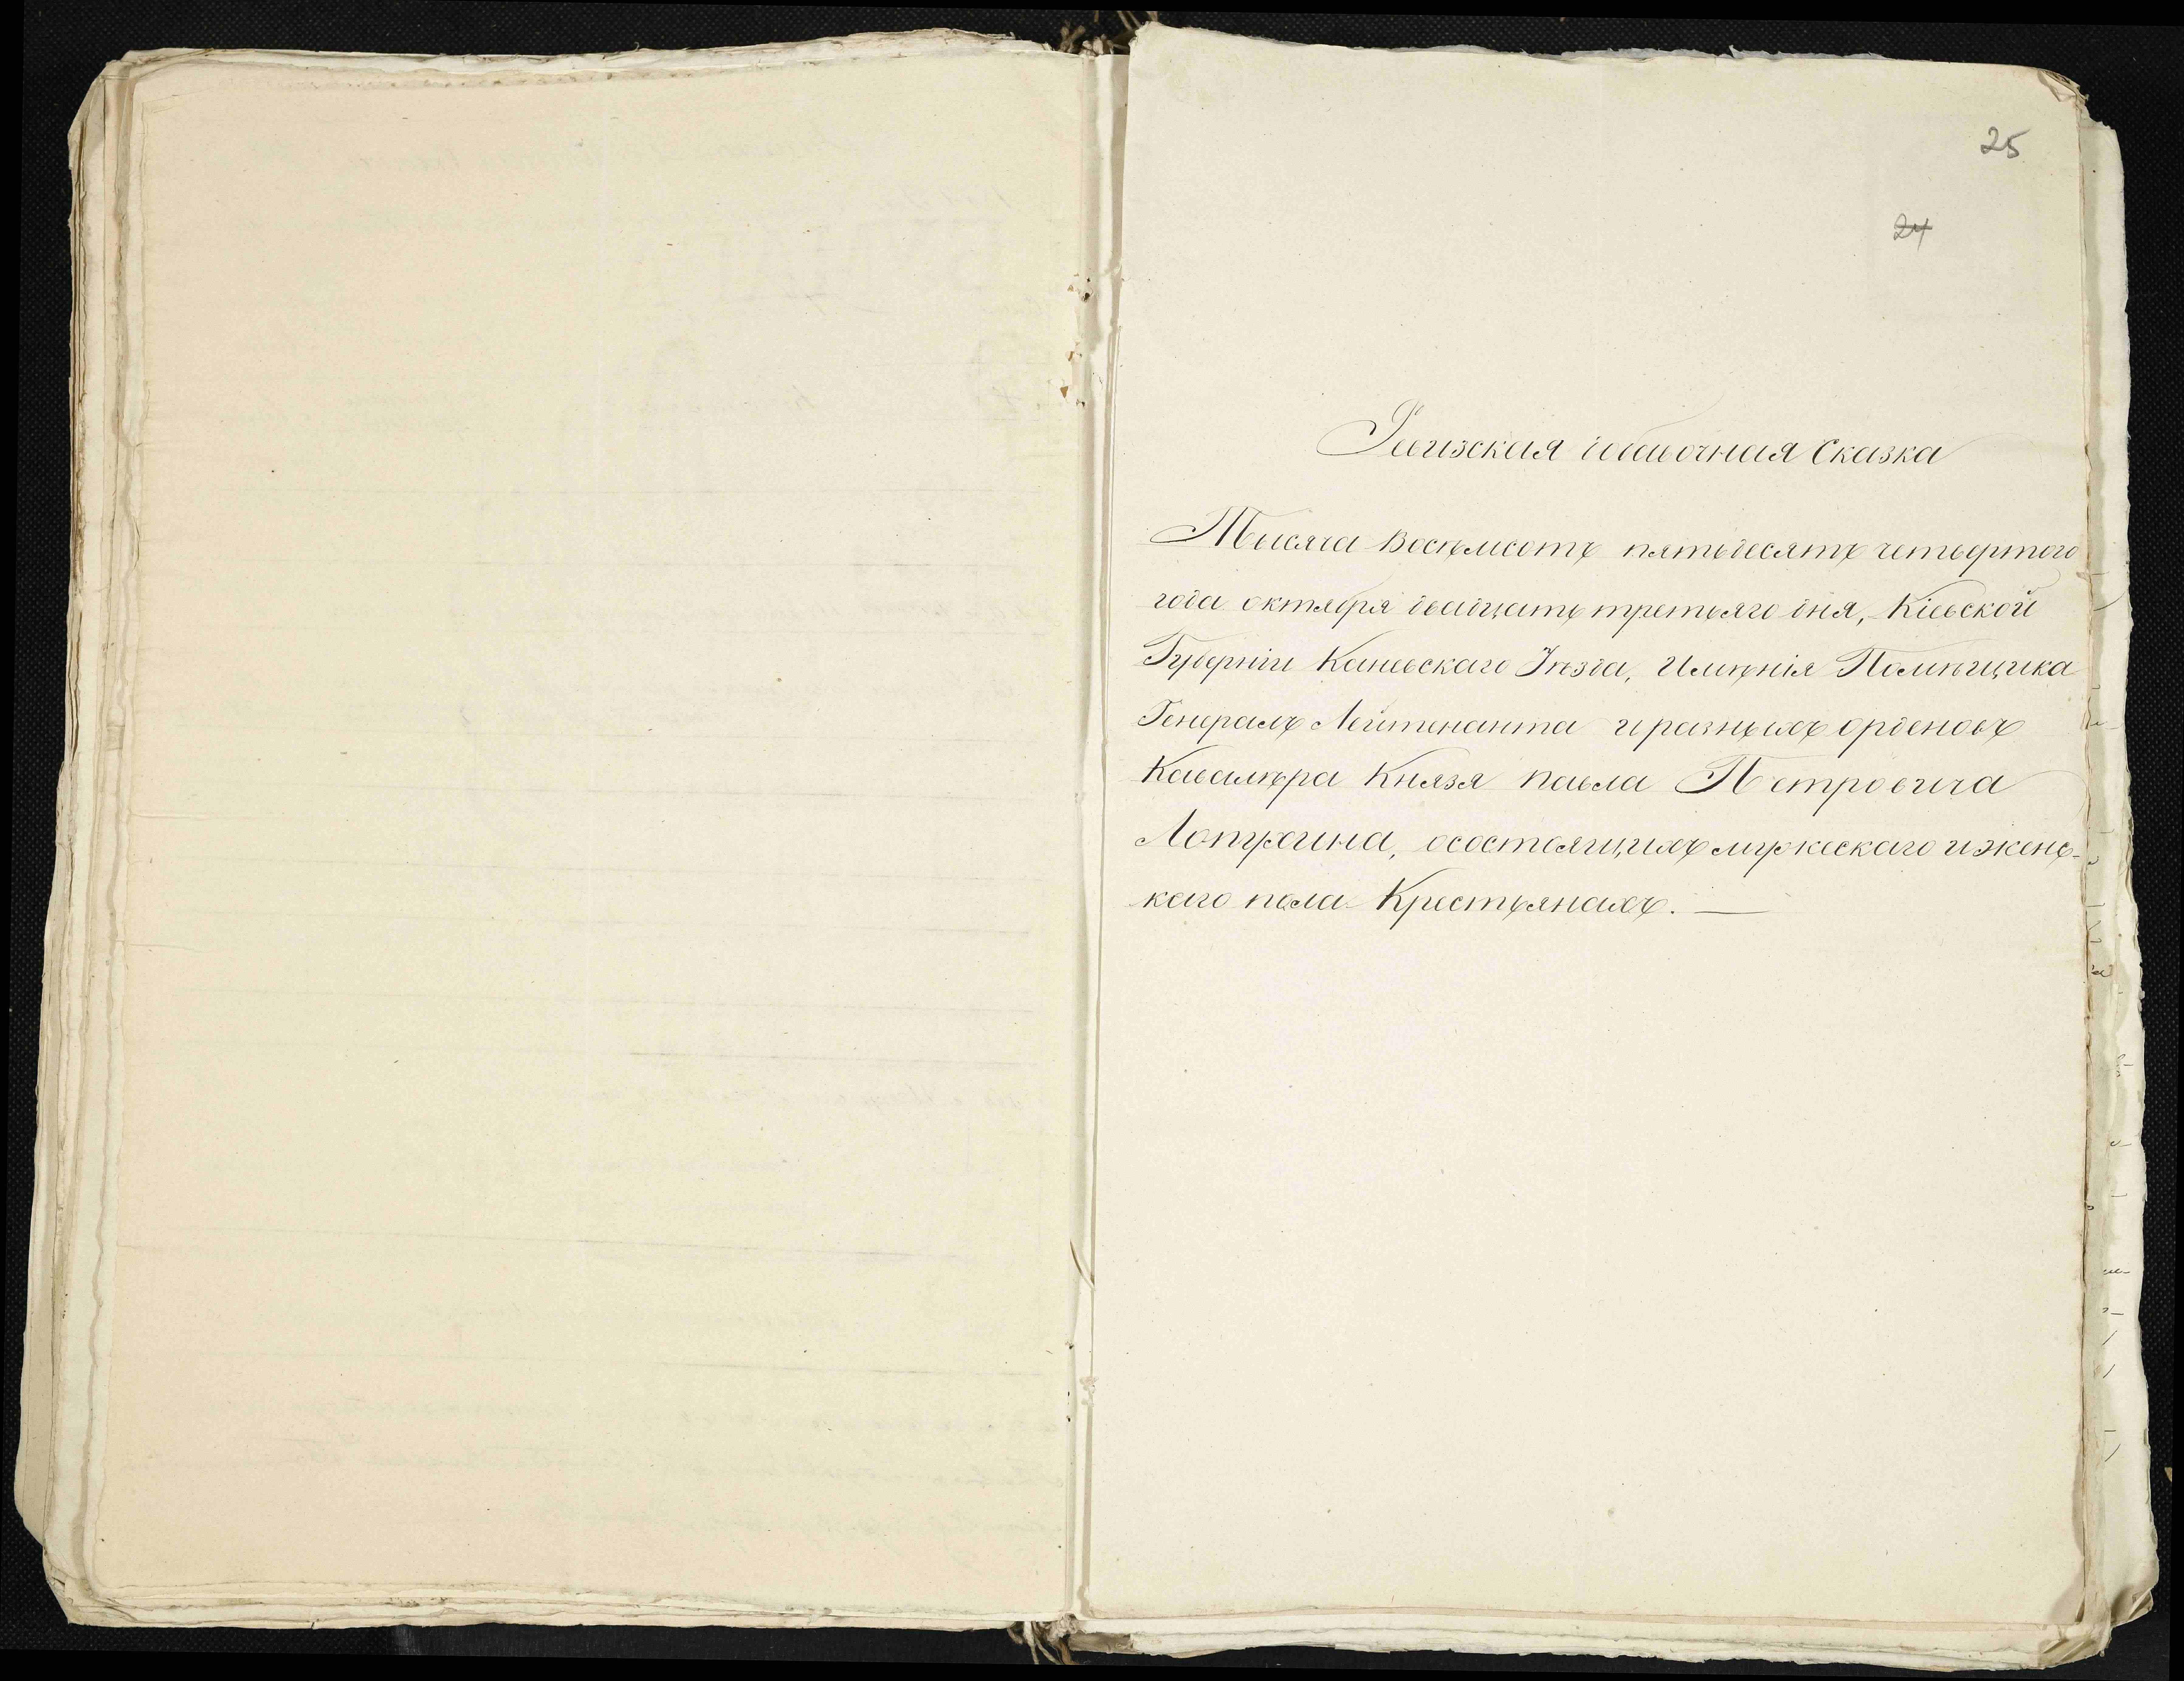 25
24
Ревизская добавочная Сказка
Тысяча Восемьсотъ пятьдесятъ четвертого
года октября двадцать третьяго дня, Кіевской
Губерніи Каневскаго Уѣзда, Имѣнія Помѣщика
Генералъ Лейтенанта и разныхъ орденовъ
Кавалѣра Князя павла Петровича
Лопухина, осостоящихъ мужескаго и женс-
каго пола Крестьянахъ. —